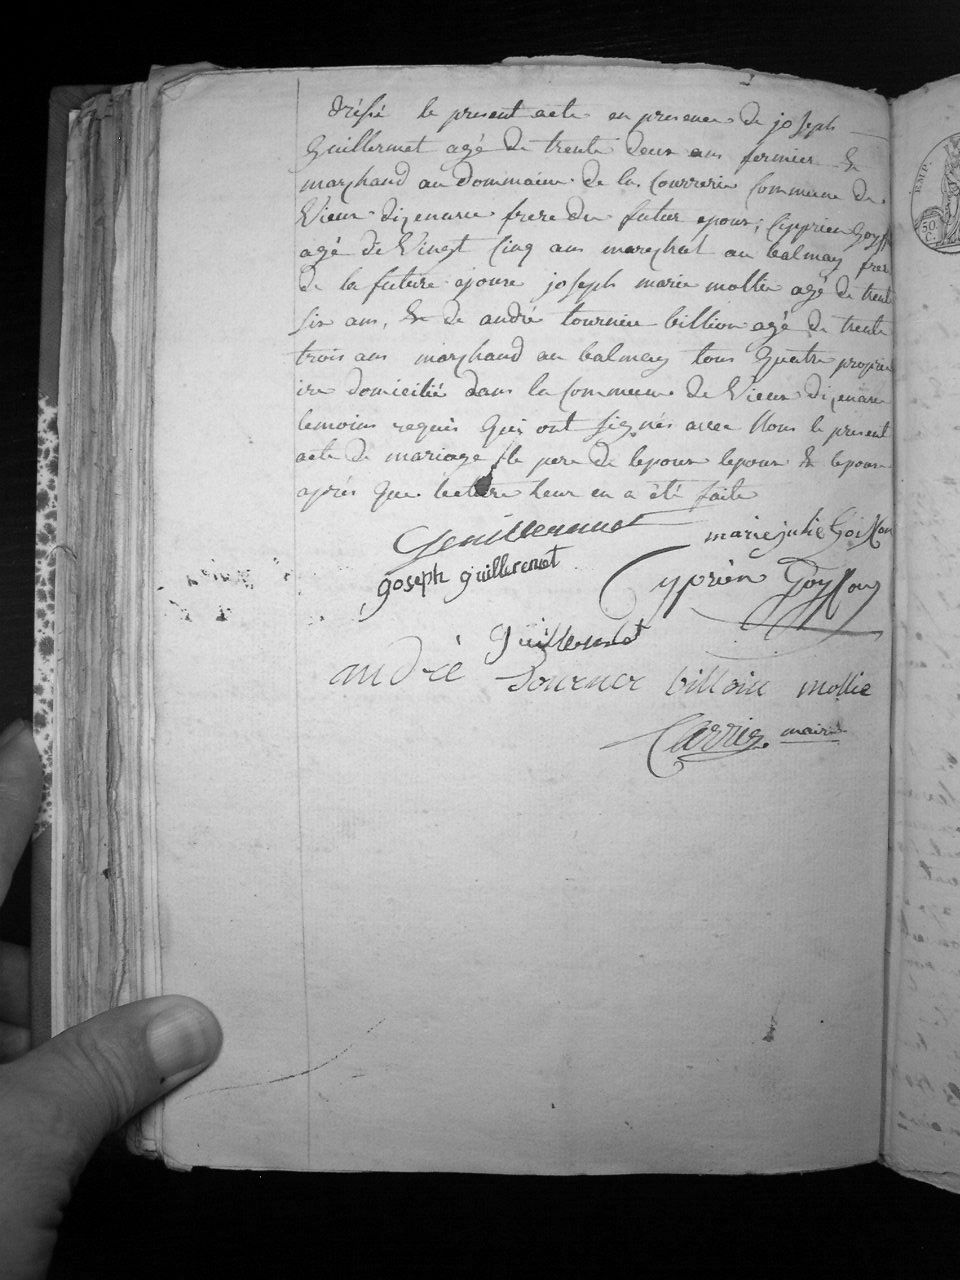 2
dréssé le present acte en presence de joseph
Guillermet agé de trente deux ans fermier &
marchand au dommaine de la Courrerie Commune de
Vieux dizenave frere du futur epoux, Cipprien Goyff
agé de Vingt Cinq ans marechal au balmay frer
de la future epouse joseph marie mollie agé de trent
six ans, & de andré tournier billion agé de trente
trois ans marchand au balmay tous quatre proprie
ire domicilié dans la Commune de Vieux dizenave
temoins requis qui ont signés avec Nous le present
acte de mariage le pere de lepoux lepoux & lepouse
aprés que lecture leur en a été faite
Guillermet marie julie Goiffon
joseph guillermet Cyprien Goyffon
guillermet
andré tourner billoin mollie
Carrier maire
EMP.
50 C.